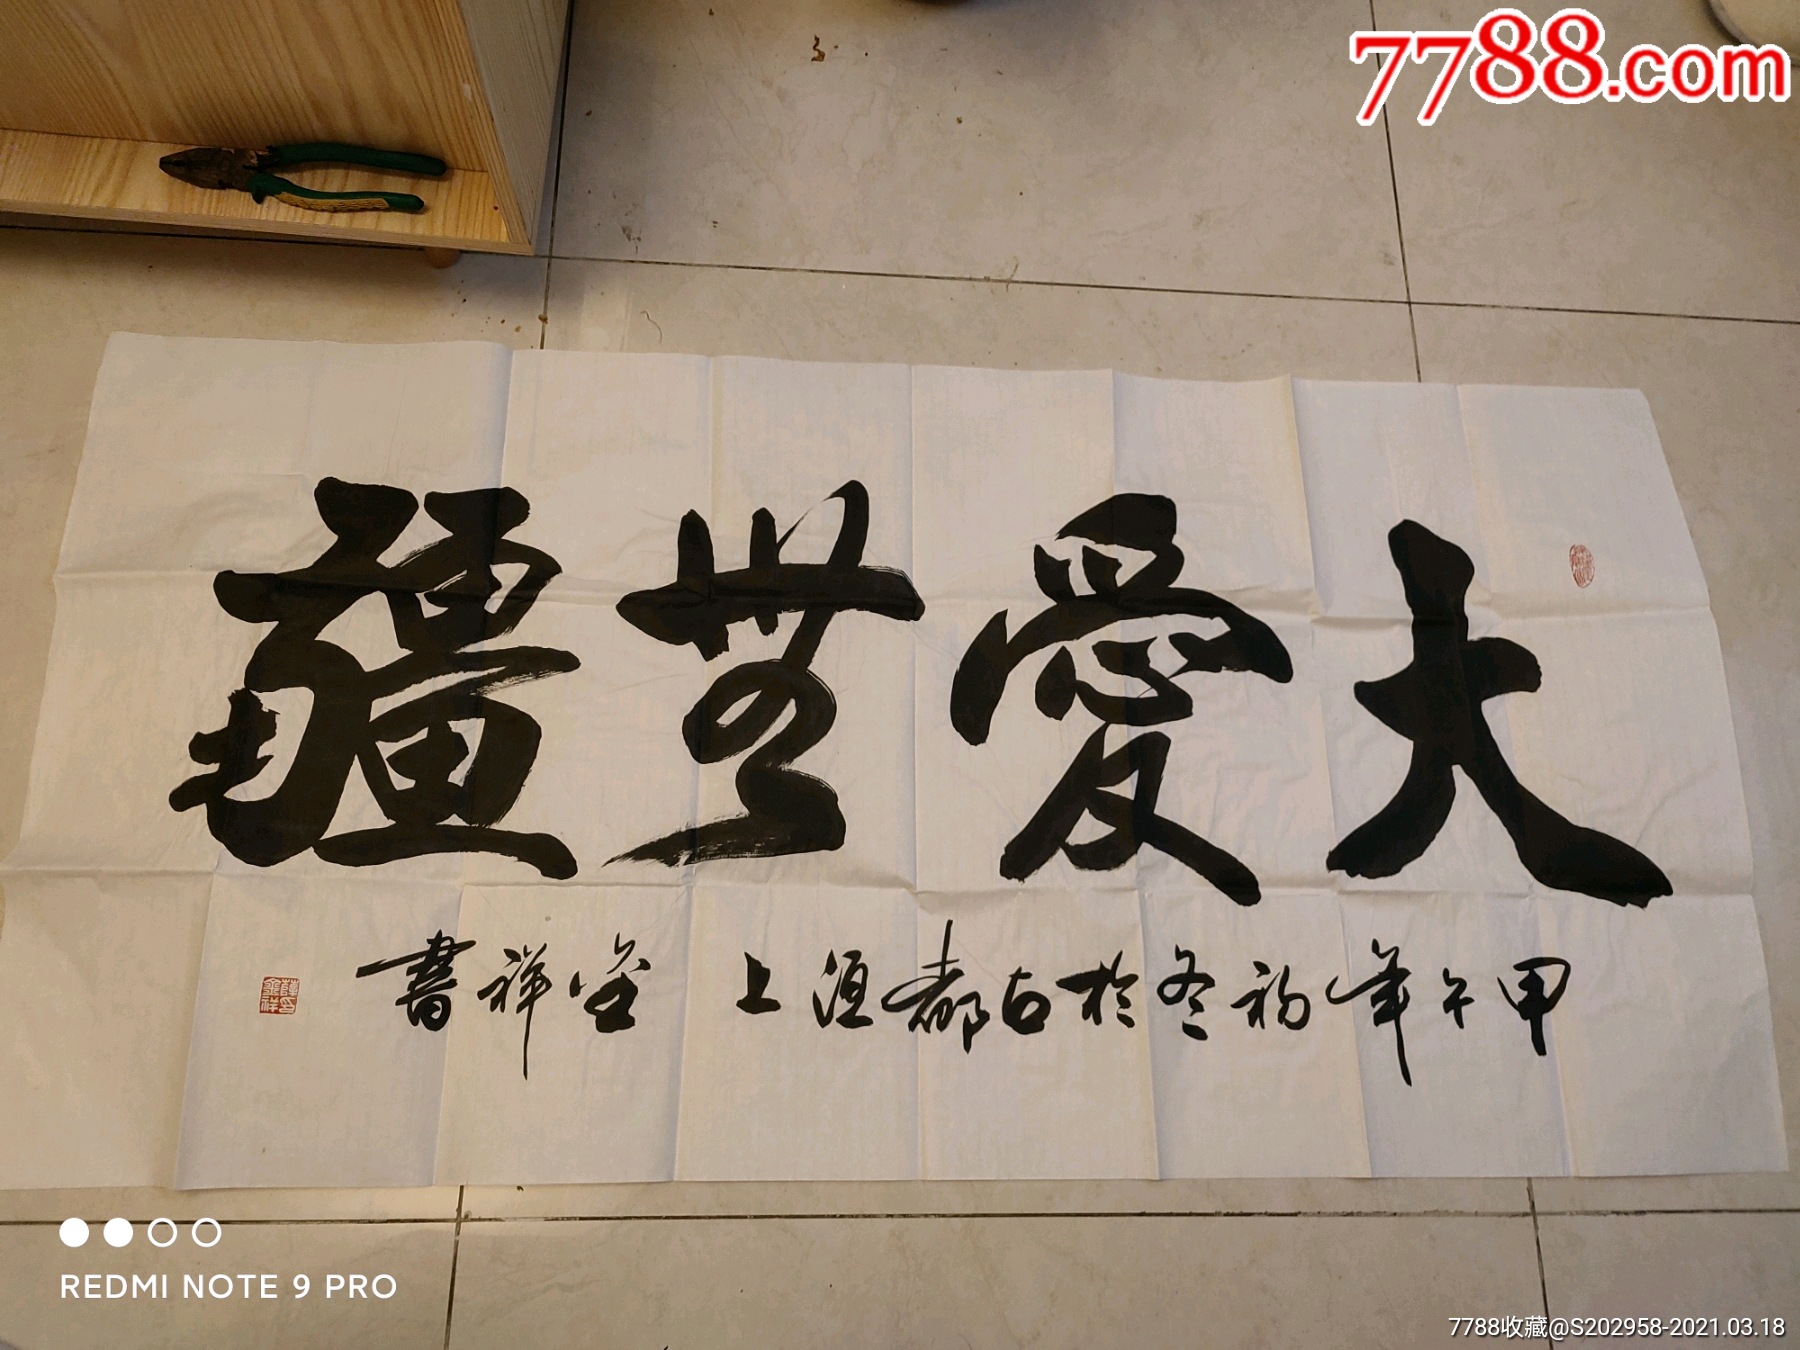 7788.com
大愛無疆
甲午年初冬於古都洹上 金祥書
REDMI NOTE 9 PRO
7788收藏@S202958-2021.03.18